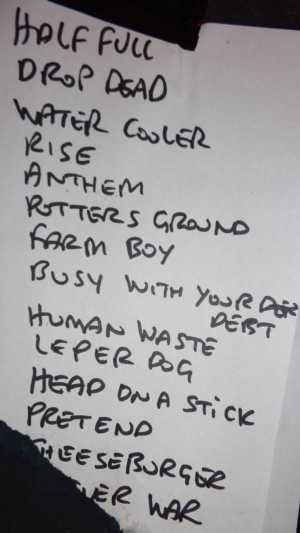 HALF FULL
DROP DEAD
WATER COOLER
RISE
ANTHEM
ROTTERS GROUND
FARM BOY
BUSY WITH YOUR DEB
DEBT
HUMAN WASTE
LEPER DOG
HEAD ON A STICK
PRETEND
HEESEBURGER
VER WAR